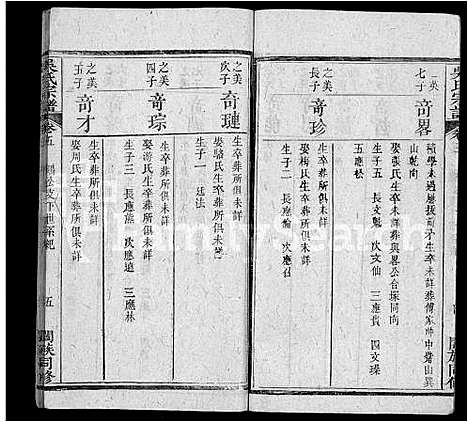 吳氏宗譜
一英
七子
竒畧
山乾向
娶張氏生卒未詳葬與畧公台塚同向
生子五 長文魁 次文仙 三應貴 四文璨
五應松
之美
長子
竒珍
生卒葬所俱未詳
娶梅氏生卒葬所俱未詳
生子二 長應綸 次應召
之美
次子
竒璉
生卒葬所俱未詳
娶駱氏葬所俱未詳
生子一 廷法
之美
四子
竒琮
生卒葬所俱未詳
娶游氏生卒葬所俱未詳
生子三 長應能 次應遠 三應林
之美
五子
竒才
生卒葬所俱未詳
娶周氏生卒葬所俱未詳
吳氏宗譜
卷五
五
闔族同修
FamilySearch